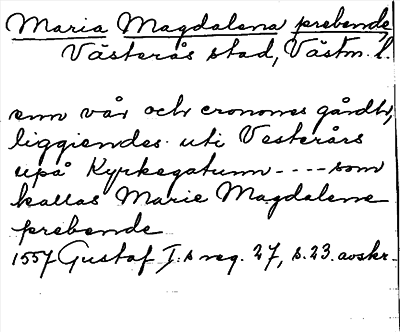 Maria Magdalena prebende,
Västerås stad, Västm. l.
enn vår och cronones gårdh,
liggiendes uti Vesterårs
upå Kyrkegatunn - - - - som
kallas Marie Magdalene
prebende
1557 Gustaf I:s reg. 27, s. 23. avskr.